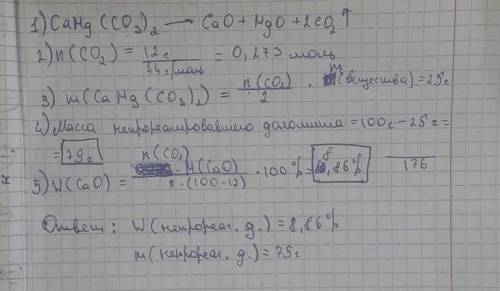 1) CaMg(CO₃)₂ → CaO + MgO + 2CO₂↑
2) n(CO₂) = 12г / 44г/моль = 0,273 моль
3) m(CaMg(CO₃)₂) = n(CO₂) / 2 · M(вещества) = 25г
4) Масса непрореагировавшего доломита = 100г - 25г =
= 75г
5) W(CaO) = n(CO₂) · M(CaO) / 2·(100-12) · 100% = 8,86%
176
x
Ответ: W(непрореаг. д.) = 8,86%
m(непрореаг. д.) = 75г